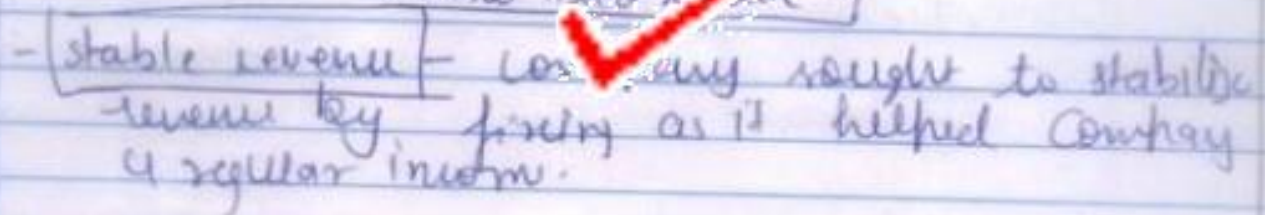 - stable revenue - Company sought to stabilize
revenue by fixing as it helped Company
4 regular incom.